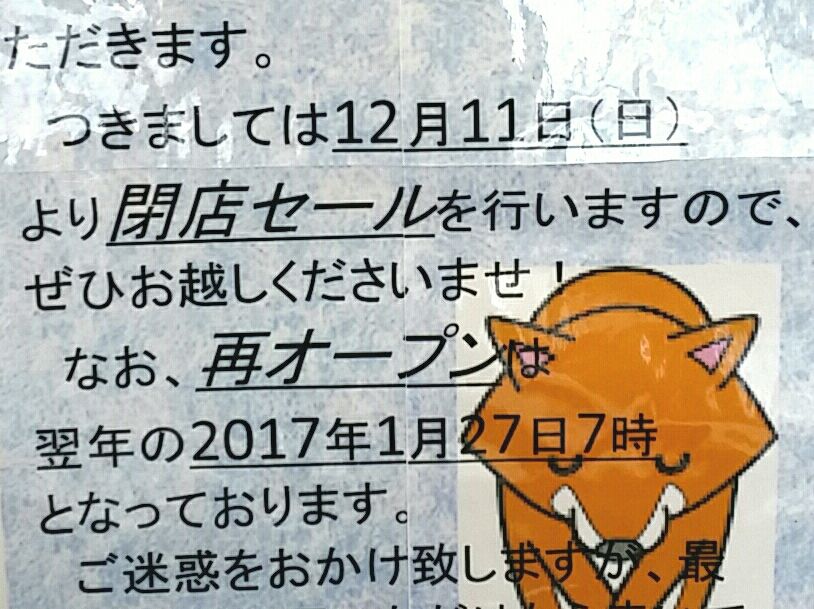 ただきます。
つきましては12月11日(日)
より閉店セールを行いますので、
ぜひお越しくださいませ!
なお、再オープンは
翌年の2017年1月27日7時
となっております。
ご迷惑をおかけ致しますが、最